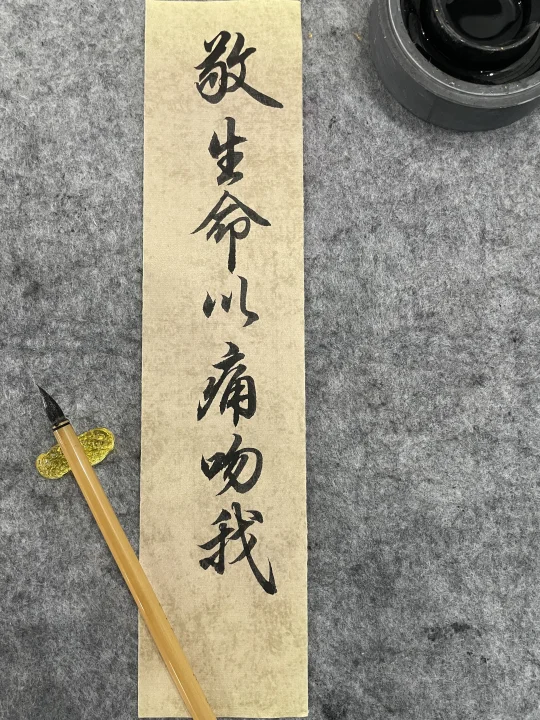 敬生命以痛吻我